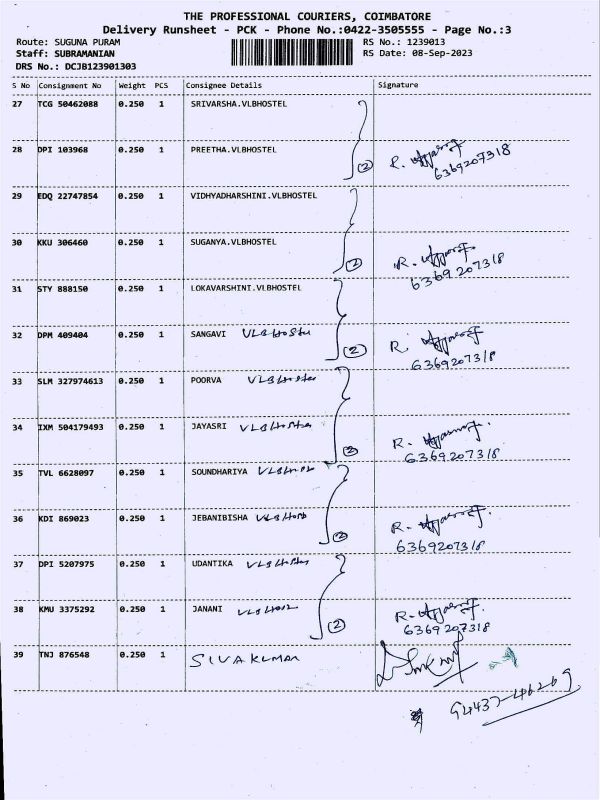 THE PROFESSIONAL COURIERS, COIMBATORE
Delivery Runsheet - PCK - Phone No.:0422-3505555 - Page No.:3
Route: SUGUNA PURAM RS No.: 1239013
Staff: SUBRAMANIAN RS Date: 08-Sep-2023
DRS No.: DCJB123901303
S No Consignment No Weight PCS Consignee Details Signature
27 TCG 50462088 0.250 1 SRIVARSHA.VLBHOSTEL
28 DPI 103968 0.250 1 PREETHA.VLBHOSTEL (2) R.
6369207318
29 EDQ 22747854 0.250 1 VIDHYADHARSHINI.VLBHOSTEL
30 KKU 306460 0.250 1 SUGANYA.VLBHOSTEL (2) R.
6369207318
31 STY 888150 0.250 1 LOKAVARSHINI.VLBHOSTEL
32 DPM 409404 0.250 1 SANGAVI VLBHostel (2) R.
6369207318
33 SLM 327974613 0.250 1 POORVA VLBHostel
34 IXM 504179493 0.250 1 JAYASRI VLBHostel (2) R.
6369207318
35 TVL 6628097 0.250 1 SOUNDHARIYA VLBHostel
36 KDI 869023 0.250 1 JEBANIBISHA VLBHostel (2) R.
6369207318
37 DPI 5207975 0.250 1 UDANTIKA VLBHostel
38 KMU 3375292 0.250 1 JANANI VLBHostel (2) R.
6369207318
39 TNJ 876548 0.250 1 SIVAKUMAR
94437-46269